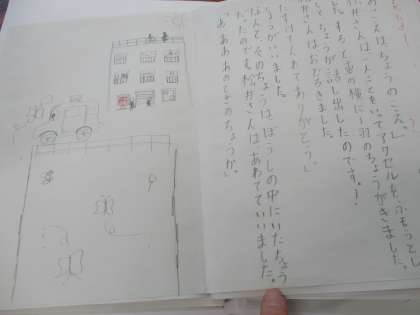 のこえはちょうのこえ。」
井さんはんこくもいってアクセルをふもうとし
すると車の横に一羽のちょうがきました。
くちょうが話し出したのです。!
井さんはおどろきました。
たすけてくれてありがとう。」
ょうがいいました。
なんとそのちょうはぼうしの中にいたちょう
たのです松井さんはあわてていいました。
「あああのときのちょうか」